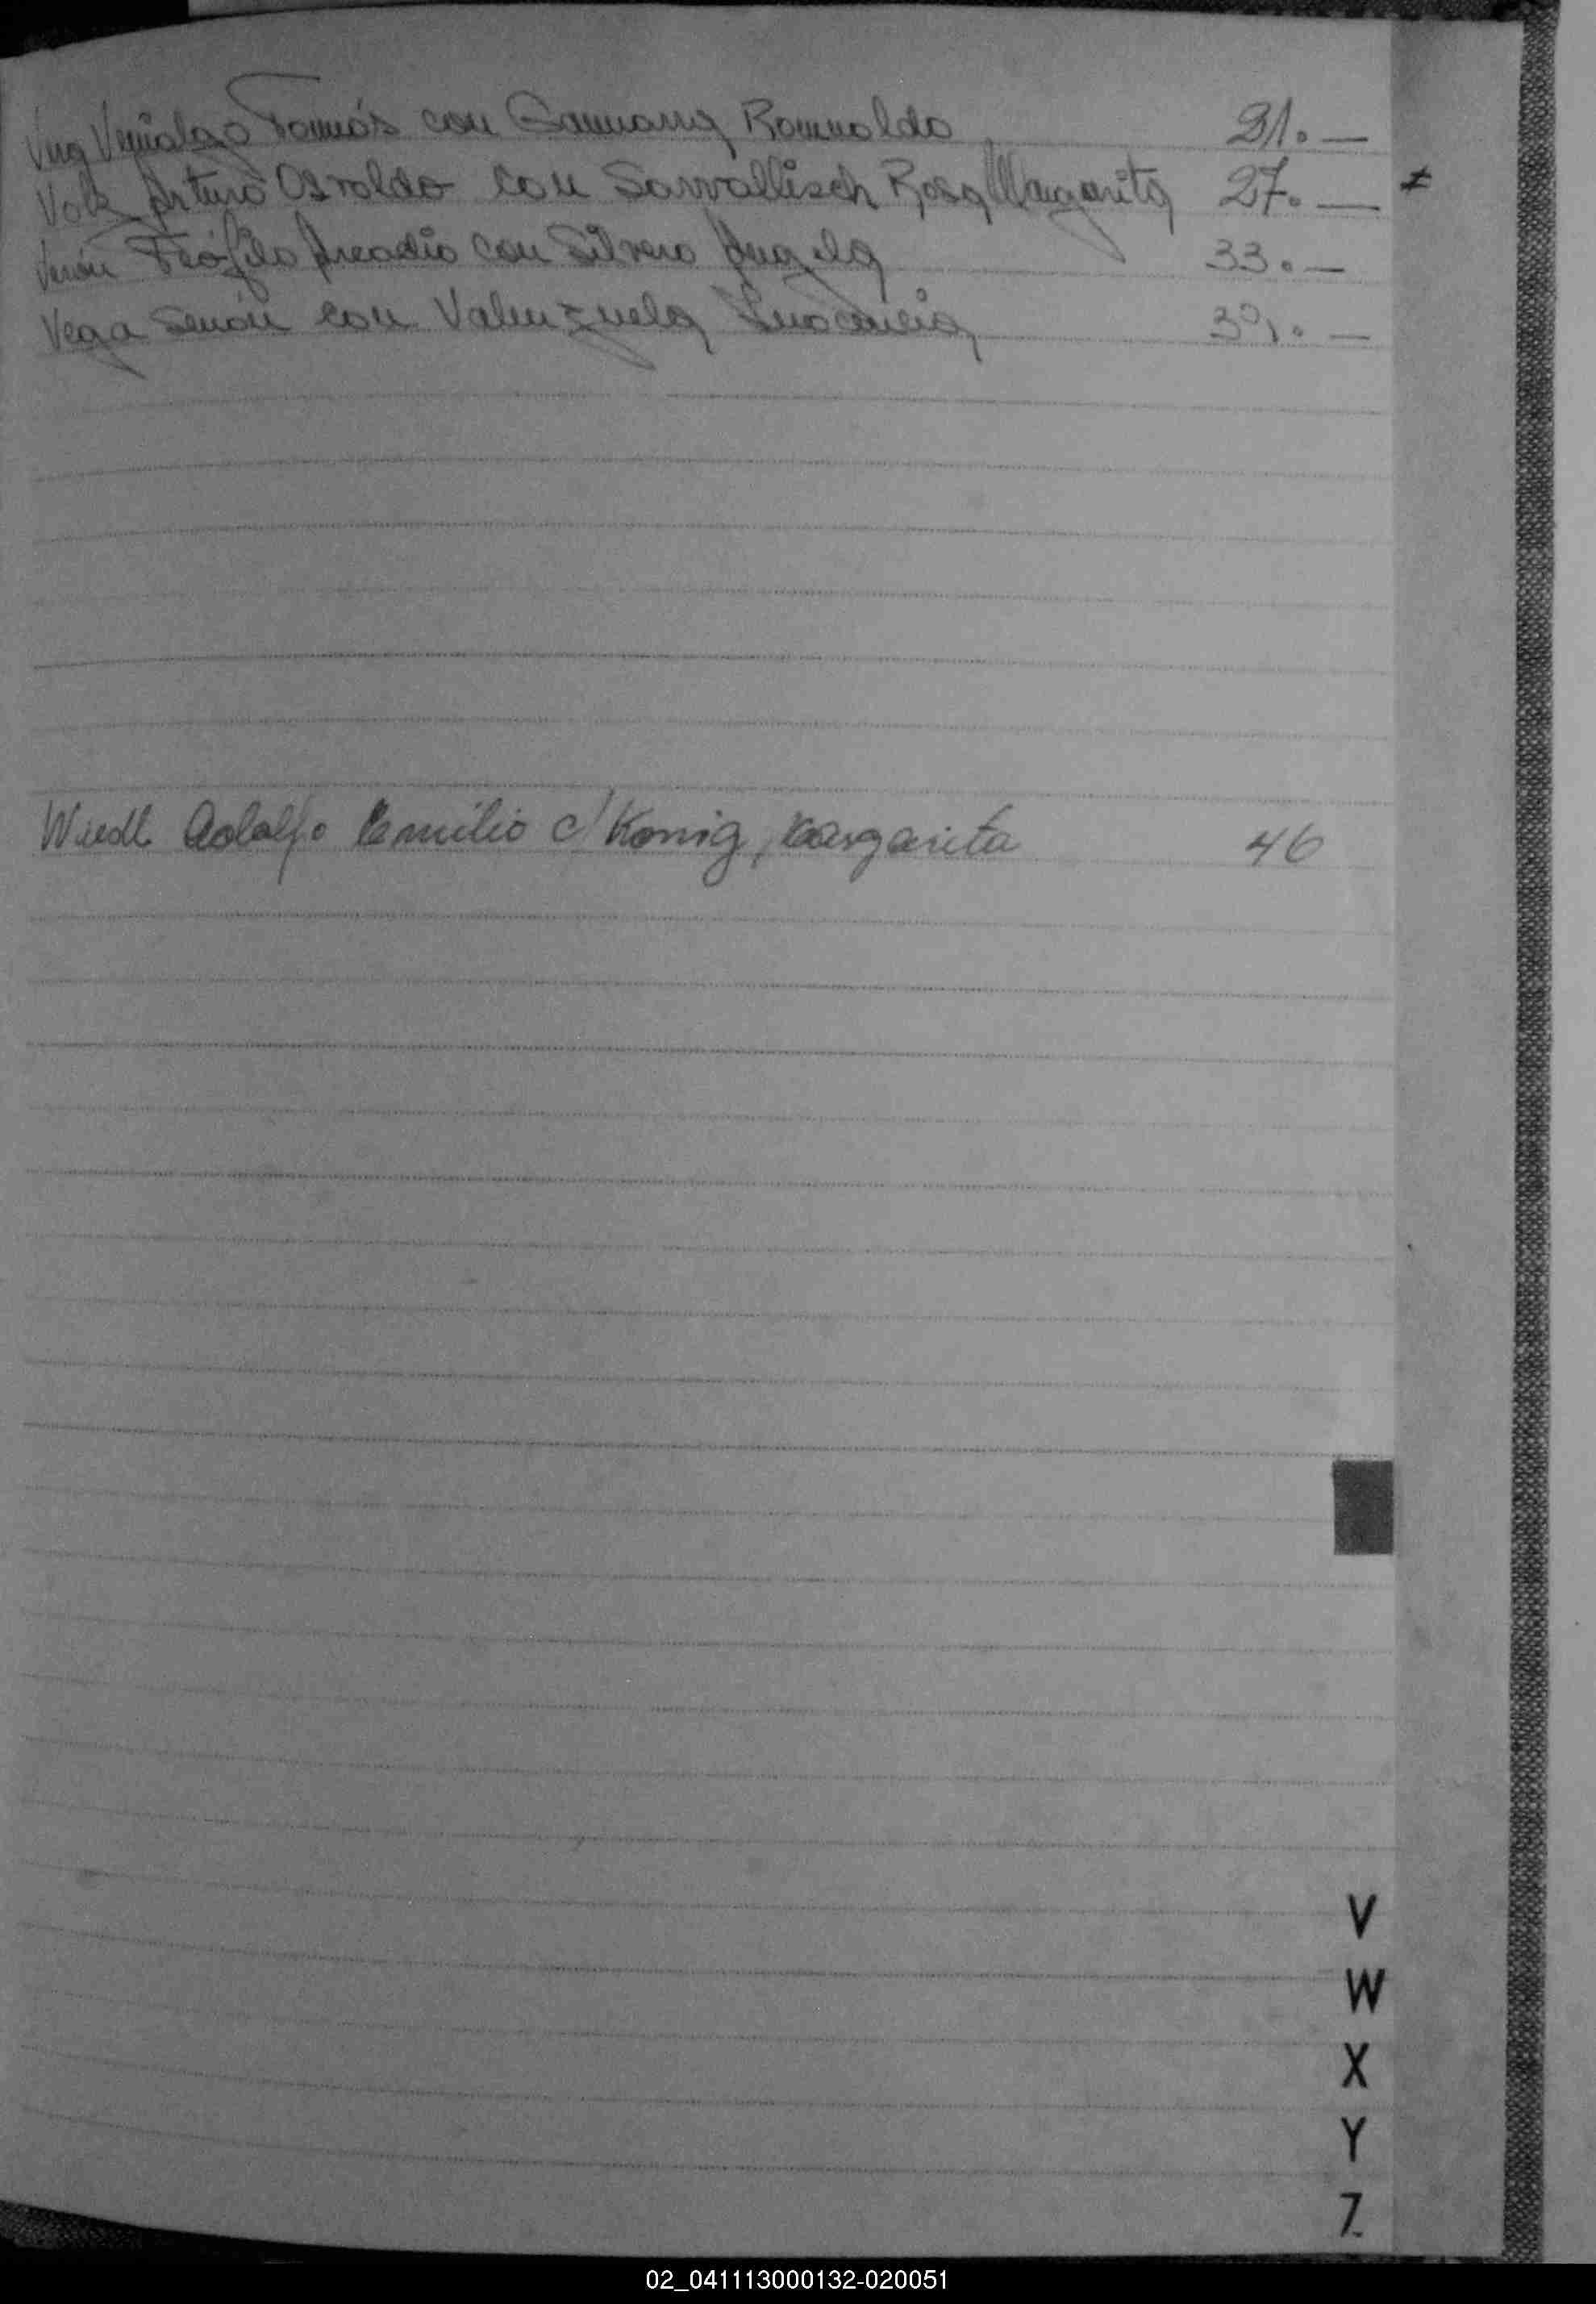 Tomás con Romualdo 21.—
Volz Arturo Osvaldo con Sawallisch Rosa Margarita 27.— ≠
Verón Teófilo Arcadio con Silvero Angela 33.—
Vega Senón con Valenzuela Inocencia
Wiedl Adolfo Emilio c/ Konig, Margarita 46
V
W
X
Y
Z
02_041113000132-020051